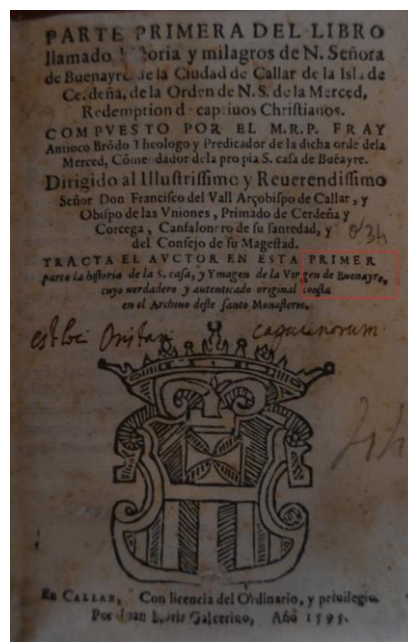 PARTE PRIMERA DEL LIBRO
llamado Historia y milagros de N. Señora
de Buenayre de la Ciudad de Callar de la Isla de
Cerdeña, de la Orden de N. S. de la Merced,
Redemption de captiuos Christianos.
COMPVESTO POR EL M.R.P. FRAY
Antioco Brõdo Theologo y Predicador de la dicha orde dela
Merced, Cõmendador dela propia S. casa de Bueayre.
Dirigido al Illustrissimo y Reuerendissimo
Señor Don Francisco del Vall Arçobispo de Callar, y
Obispo de las Vniones, Primado de Cerdeña y
Corcega, Confalonero de su santedad, y
del Consejo de su Magestad.
TRACTA EL AVCTOR EN ESTA PRIMER
parte la historia de la S. casa, y Ymagen de la Virgen de Buenayre,
cuyo verdadero y autenticado original consta
en el Archiuo deste santo Monasterio.
est loci Oristan
En CALLAR, Con licencia del Ordinario, y priuilegio.
Por Juan Maria Galcerino, Año 1595.